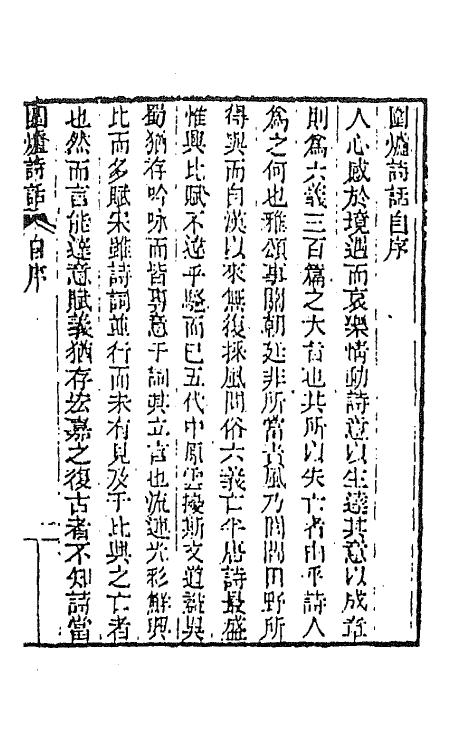 圍爐詩話自序
人心感於境遇而哀樂情動詩意以生達其意以成章
則爲六義三百篇之大旨也其所以失亡者由乎詩人
爲之何也雅頌事關朝廷非所當責風乃閭閻田野所
得與而自漢以來無復採風問俗六義亡半唐詩最盛
惟興比賦不遠乎騷而已五代中原雲擾斯文道誰吳
蜀猶存吟咏而皆專意于詞其立言也流連光彩鮮興
比而多賦宋雖詩詞並行而未有見及于比興之亡者
也然而言能達意賦義猶存宏嘉之復古者不知詩當
圍爐詩話
自序
一